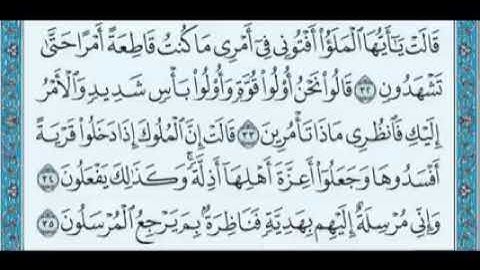 قَالَتْ يَٰٓأَيُّهَا ٱلْمَلَؤُا۟ أَفْتُونِى فِىٓ أَمْرِى مَا كُنتُ قَاطِعَةً أَمْرًا حَتَّىٰ
تَشْهَدُونِ ٣٢ قَالُوا۟ نَحْنُ أُو۟لُوا۟ قُوَّةٍ وَأُو۟لُوا۟ بَأْسٍ شَدِيدٍ وَٱلْأَمْرُ
إِلَيْكِ فَٱنظُرِى مَاذَا تَأْمُرِينَ ٣٣ قَالَتْ إِنَّ ٱلْمُلُوكَ إِذَا دَخَلُوا۟ قَرْيَةً
أَفْسَدُوهَا وَجَعَلُوٓا۟ أَعِزَّةَ أَهْلِهَآ أَذِلَّةً ۖ وَكَذَٰلِكَ يَفْعَلُونَ ٣٤
وَإِنِّى مُرْسِلَةٌ إِلَيْهِم بِهَدِيَّةٍ فَنَاظِرَةٌۢ بِمَ يَرْجِعُ ٱلْمُرْسَلُونَ ٣٥